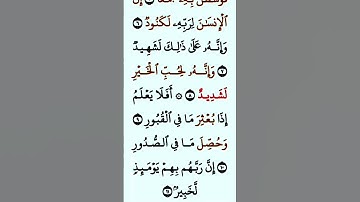 فَوَسَطْنَ بِهِۦ جَمْعًا ۝٥ إِنَّ
ٱلْإِنسَـٰنَ لِرَبِّهِۦ لَكَنُودٌ ۝٦
وَإِنَّهُۥ عَلَىٰ ذَٰلِكَ لَشَهِيدٌ
۝٧ وَإِنَّهُۥ لِحُبِّ ٱلْخَيْرِ
لَشَدِيدٌ ۝٨ ۞ أَفَلَا يَعْلَمُ
إِذَا بُعْثِرَ مَا فِى ٱلْقُبُورِ ۝٩
وَحُصِّلَ مَا فِى ٱلصُّدُورِ
۝١٠ إِنَّ رَبَّهُم بِهِمْ يَوْمَئِذٍ
لَّخَبِيرٌۢ ۝١١